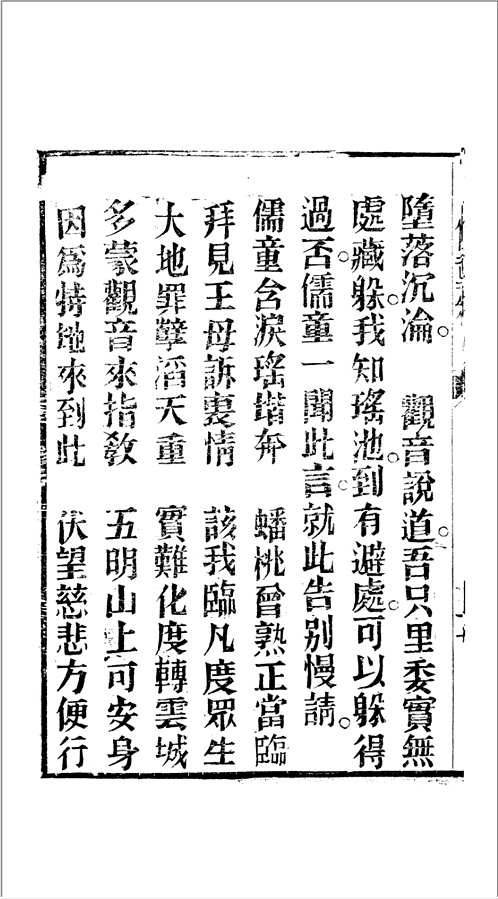 墮落沉淪。　觀音說道。吾只里委實無
處藏躲。我知瑤池。到有避處。可以躲得
過否。儒童一聞此言。就此告別慢請。
儒童含淚瑤堦奔　蟠桃會熟正當臨
拜見王母訴裏情　該我臨凡度眾生
大地罪孽滔天重　實難化度轉雲城
多蒙觀音來指敎　五明山上可安身
因爲特地來到此　伏望慈悲方便行